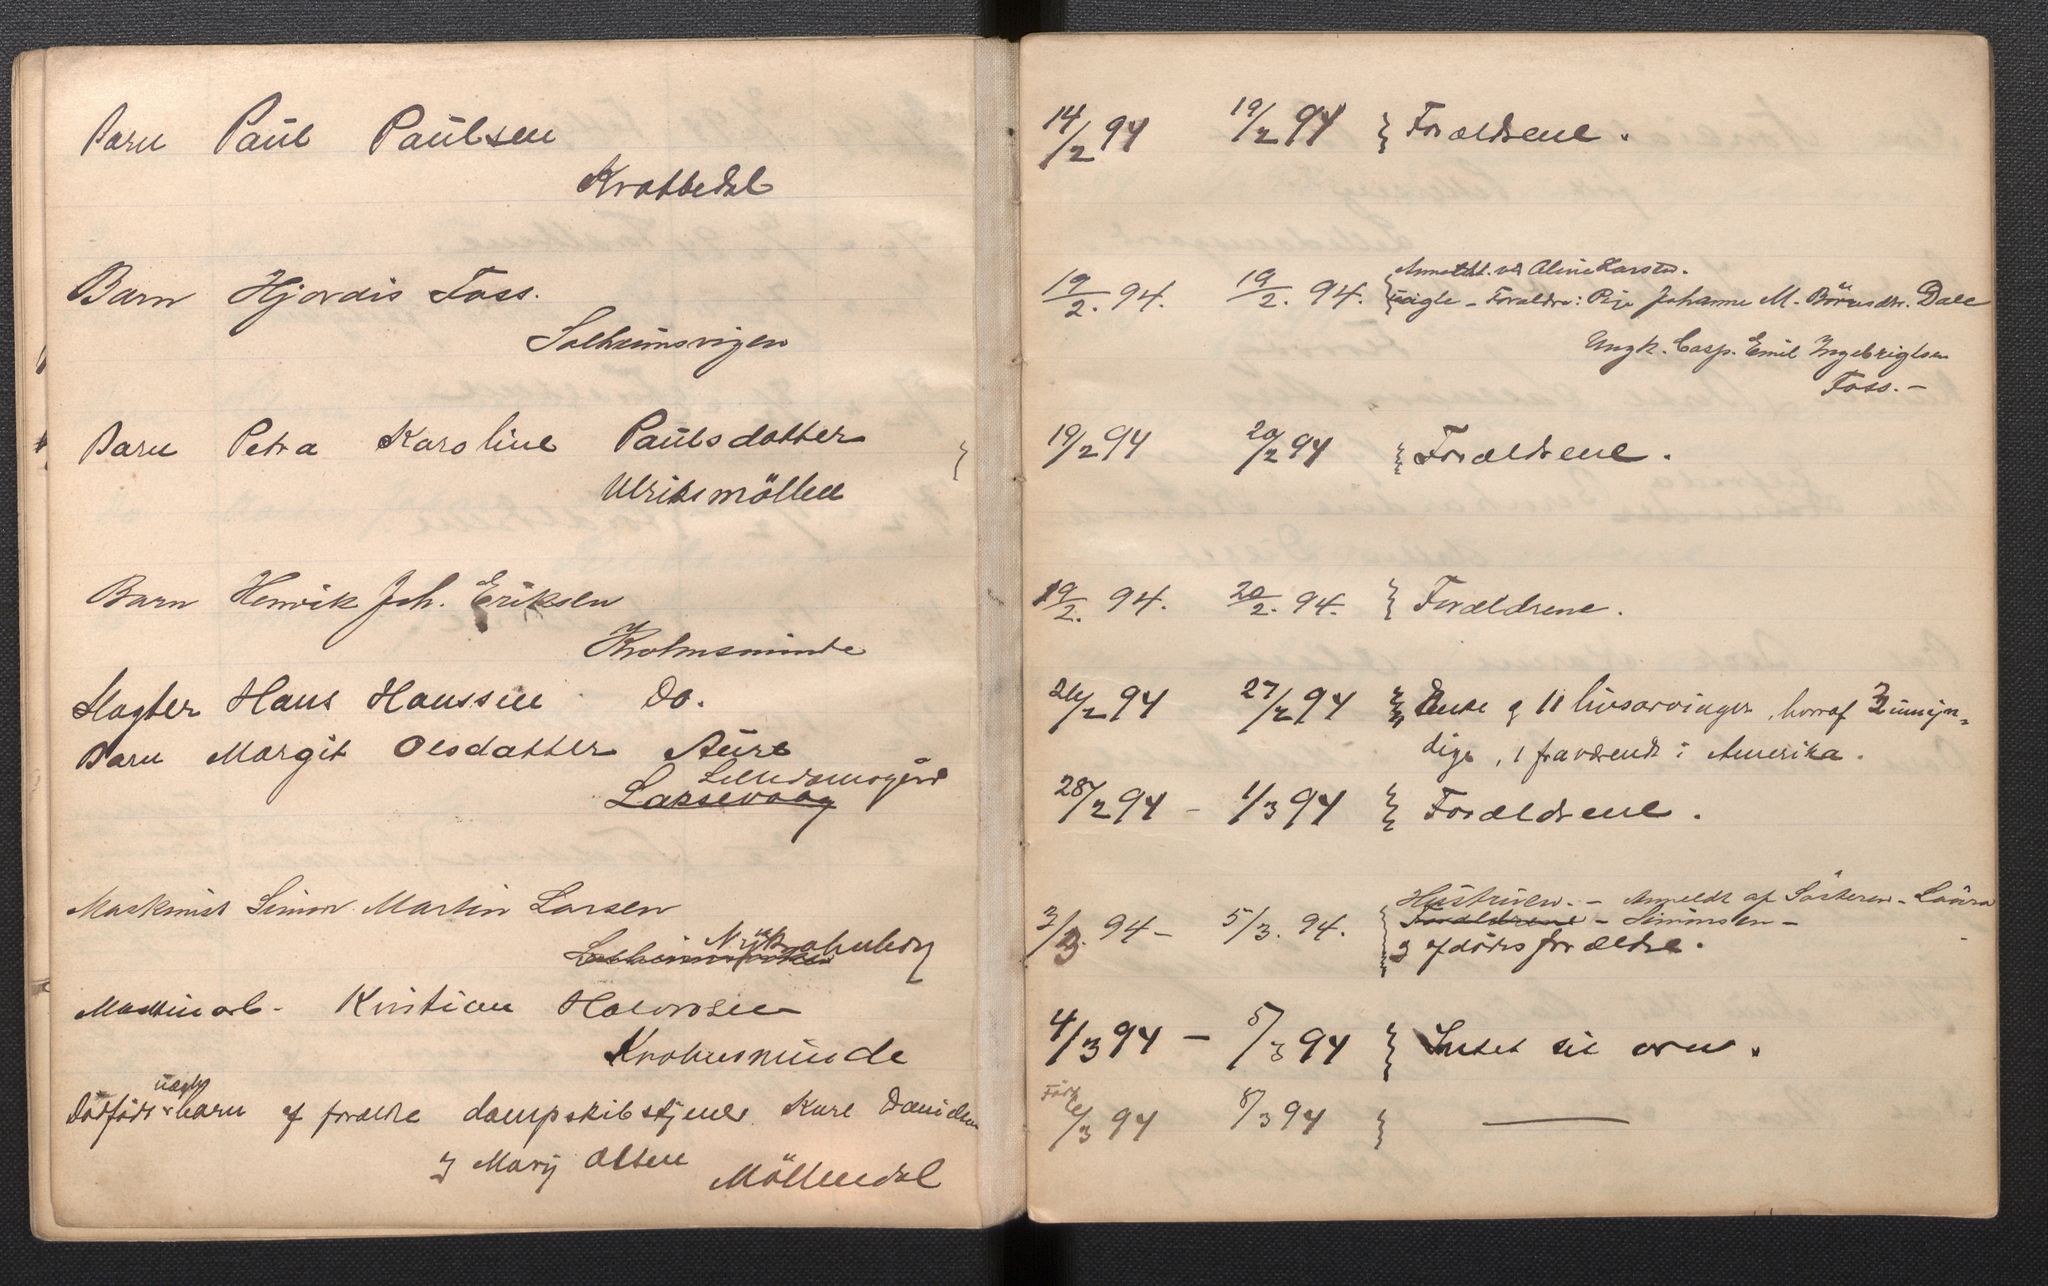 Barn Paul Paulsen
Krattedal
Barn Hjordis Foss.
Solheimsvigen
Barn Petra Karoline Paulsdatter
Ulriksmöllen
Barn Henrik Joh. Eriksen
Krohnsminde
Slagter Hans Hanssen Do.
Barn Margit Olsdatter Aure
Lilledamsgård
Laksevaag
Maskinist Simon Martin Larsen
Nykrohnborg
Kristian Halvorsen
Krohnsminde
uægte
Dødfødt barn af forældre dampskibstjener Karl Danielsen
og Mary Olsen Möllendal
14/2 94 19/2 94 } Forældrene.
Anmeldt. ved Aline Karsten.
19/2. 94. 19/2. 94. { uægte – Forældre: Pige Johanne M. Börresdtr. Dale
Ungk. Casp. Emil Ingebrigtsen
Foss. –
19/2 94 20/2 94 } Forældrene.
19/2. 94. 20/2. 94. } Forældrene.
26/2 94 27/2 94 } Enke og 11 livsarvinger, hvoraf 2 umyn-
dige, 1 fraværende i Amerika.
28/2 94 – 1/3 94 } Forældrene.
Hustruen. – Anmeldt af Søsteren – Laura
3/3. 94 – 5/3. 94. { Forældrene – Simonsen –
og afdødes forældre.
4/3 94 – 5/3 94 } Intet til arv.
Född
6/3 94 8/3 94 } —